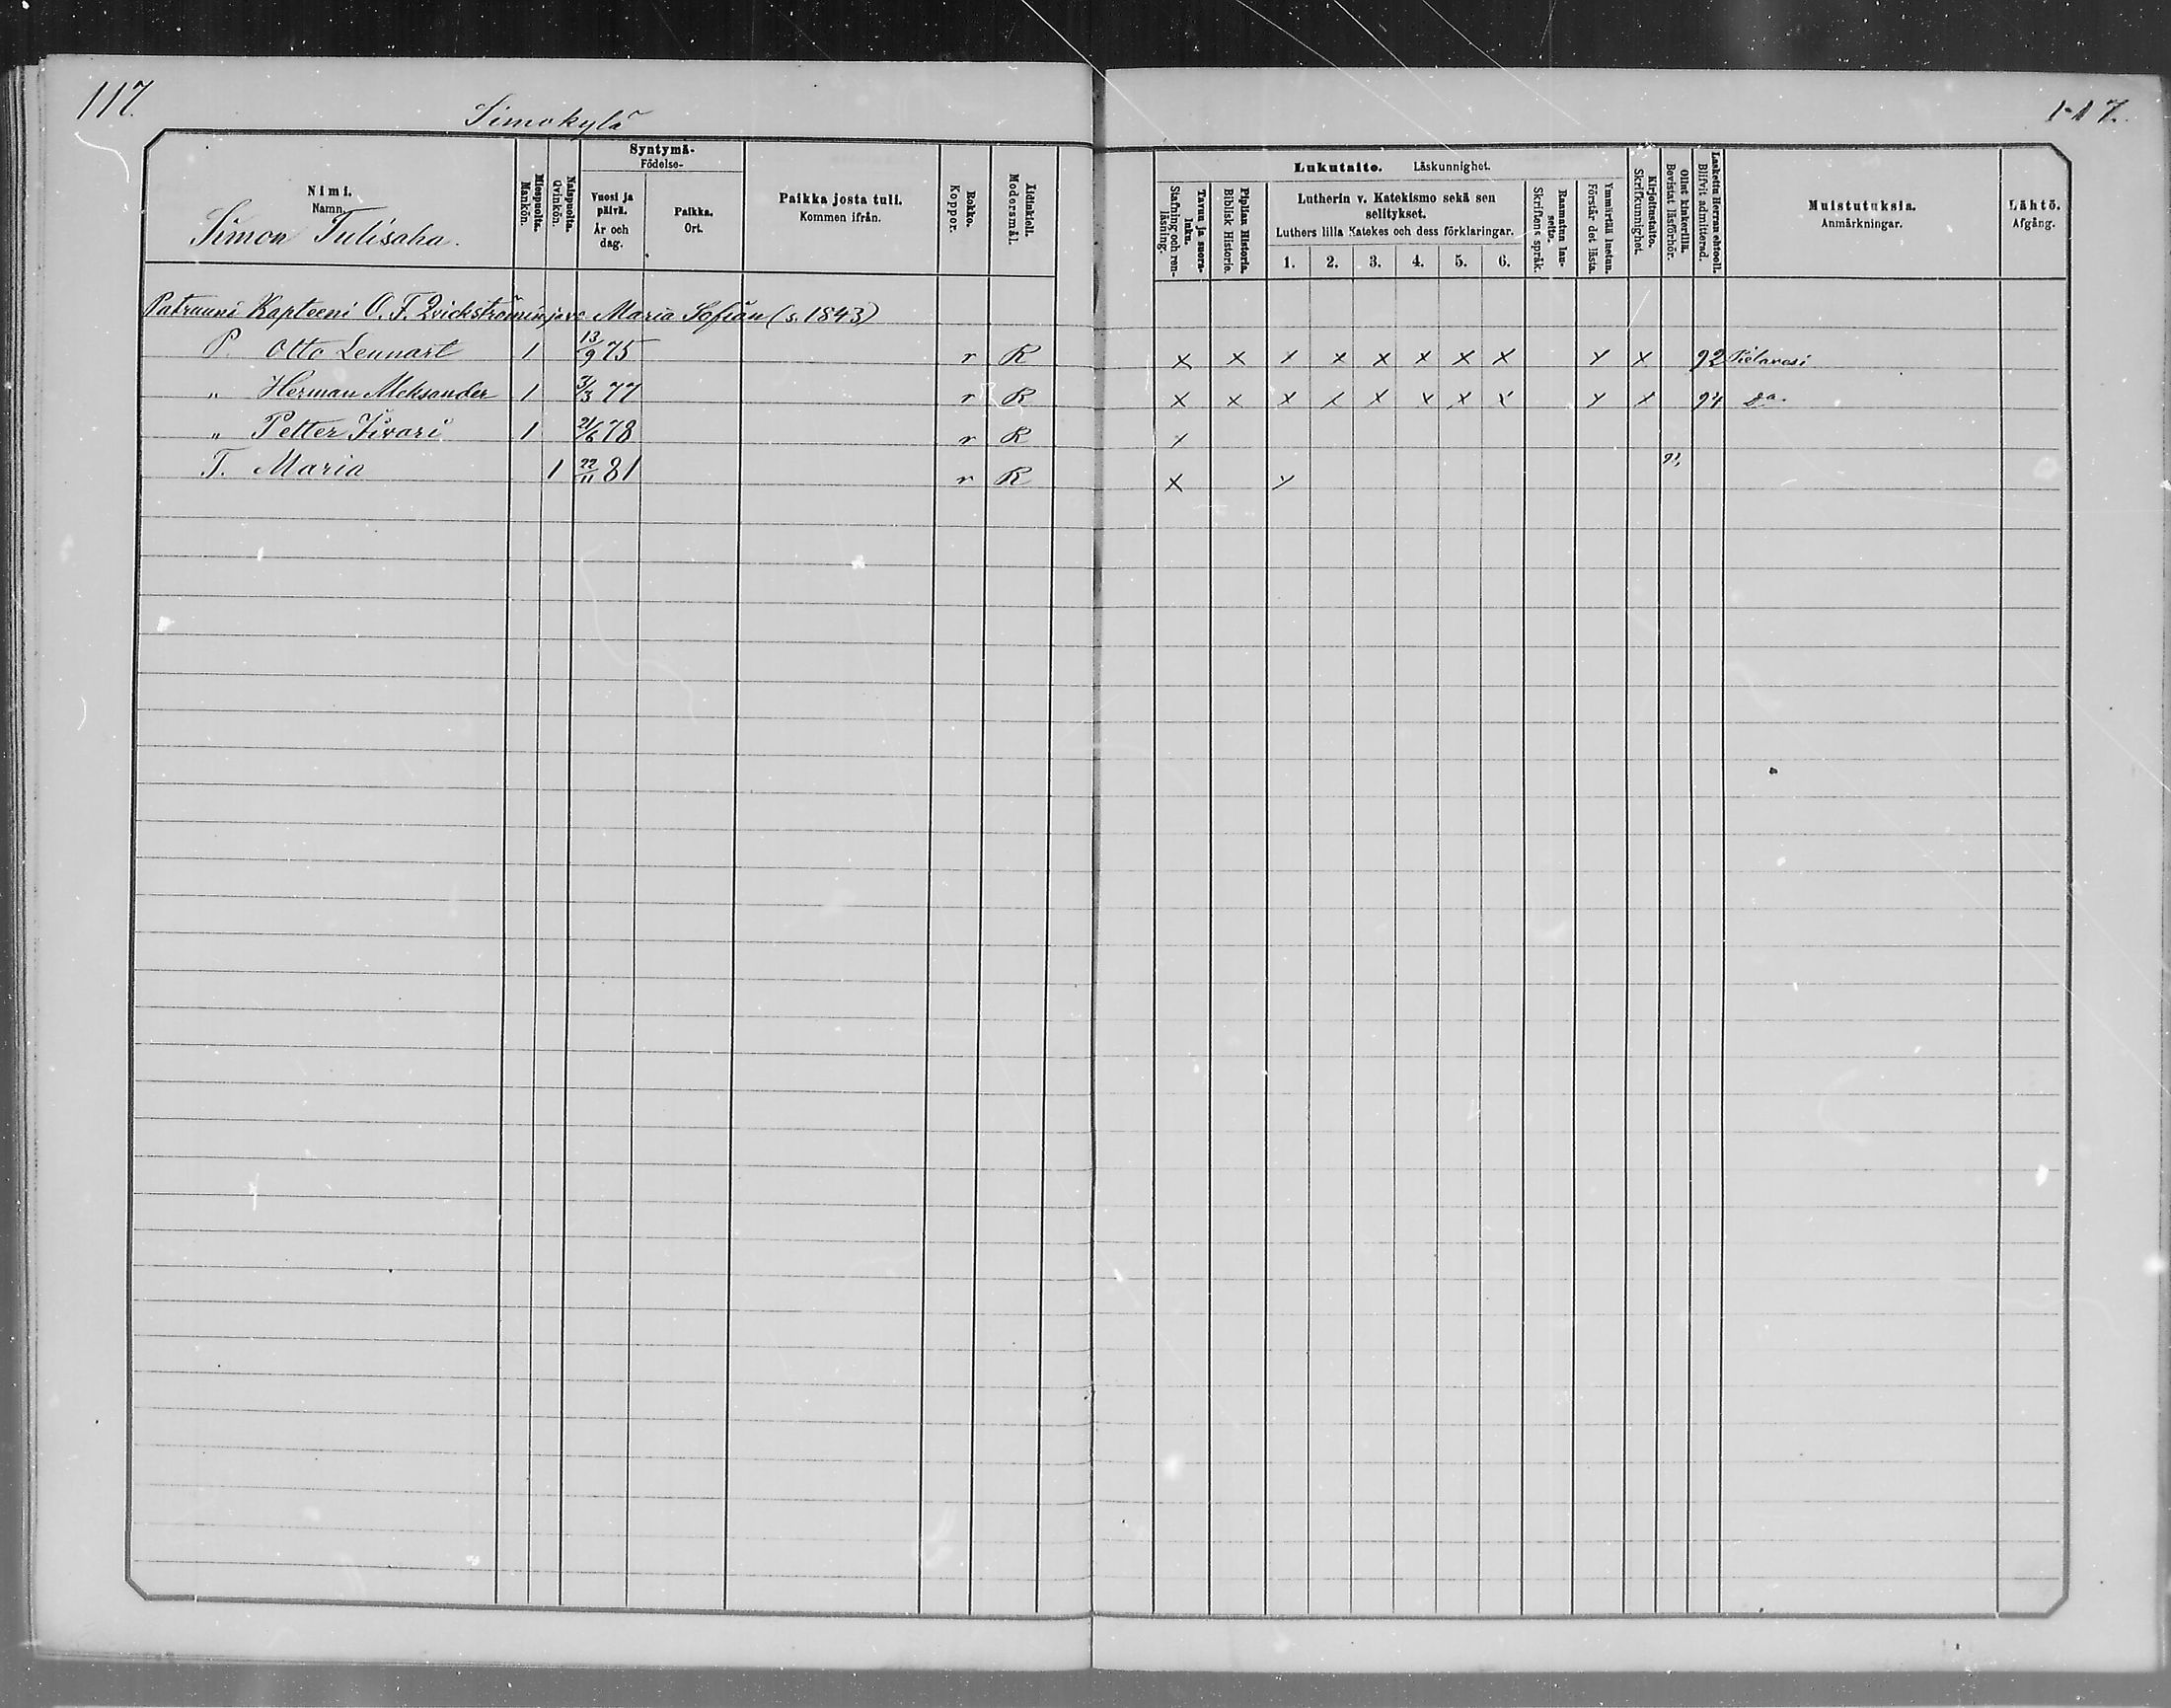 117.
Simokylä
1-17.
Nimi.
Namn.
Simon Tulisaha.
Miespuolta. Mankön.
Naispuolta. Qvinkön.
Syntymä-
Födelse-
Vuosi ja päivä.
År och dag.
Paikka.
Ort.
Paikka josta tuli.
Kommen ifrån.
Rokko. Koppor.
Äidinkieli. Modersmål.
Lukutaito. Läskunnighet.
Tavuu ja suora-luku. Stafning och ren-läsning.
Piplian Historia. Biblisk Historie.
Lutherin v. Katekismo sekä sen selitykset.
Luthers lilla Katekes och dess förklaringar.
1. 2. 3. 4. 5. 6.
Raamatun lau-seita. Skriftens språk.
Ymmärtää luetun. Förstår det lästa.
Kirjoitustaito. Skrifkunnighet.
Ollut kinkerillä. Bevistat läsförhör.
Laskettu Herran ehtooll. Blifvit admitterad.
Muistutuksia.
Anmärkningar.
Lähtö.
Afgång.
Patruuni Kapteeni O. F. Qvickströmin ja vo Maria Sofian (s. 1843)
P. Otto Lennart 1 13/9 75 r R x x x x x x x x x x 92 Pielavesi
„ Herman Aleksander 1 3/3 77 r R x x x x x x x x x x 94 Do.
„ Petter Iivari 1 21/6 78 r R x
T. Maria 1 22/11 81 r R x x 91,